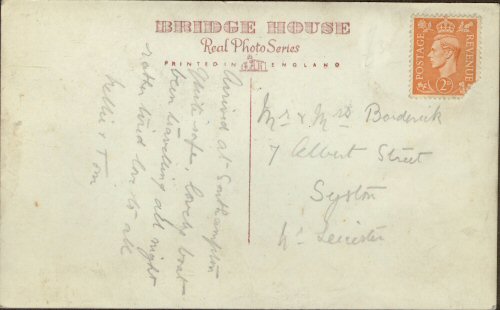 BRIDGE HOUSE
Real Photo Series
PRINTED IN ENGLAND
POSTAGE
REVENUE
2D
Arrived at Southampton
quite safe, lovely boat
been travelling all night
rather tired love to all
Nellie & Tom
Mr & Mrs Borderick
7 Albert Street
Syston
Nr Leicester